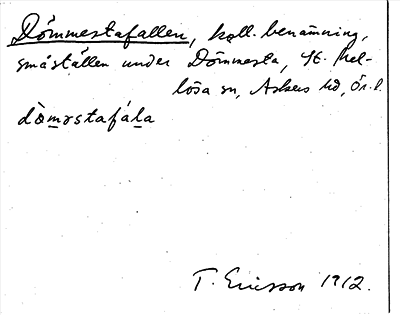 Dömmestafallen, koll. benämning,
småställen under Dömmesta, St. Mel-
lösa sn, Askers hd, Ör. l.
dòməstafála
T. Ericsson 1912.